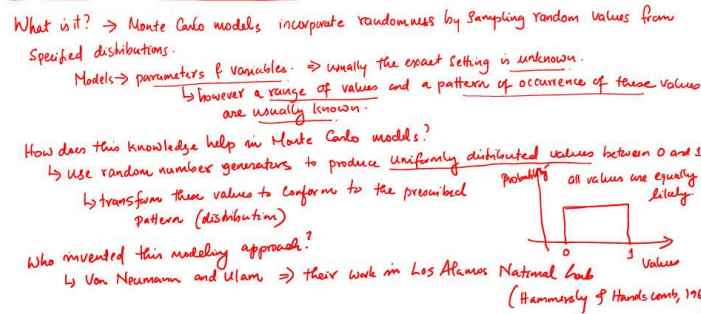 What is it? → Monte Carlo models incorporate randomness by sampling random values from
specified distributions.
Models → parameters & variables. ⇒ usually the exact setting is unknown.
↳ however a range of values and a pattern of occurrence of these values
are usually known.
How does this knowledge help in Monte Carlo models?
↳ use random number generators to produce uniformly distributed values between 0 and 1
↳ transform these values to conform to the prescribed
pattern (distribution)
Probability
all values are equally
likely.
0 1 values
Who invented this modeling approach?
↳ Von Neumann and Ulam ⇒ their work in Los Alamos National Lab
(Hammersly & Handscomb, 196